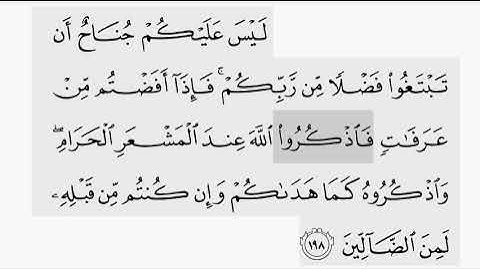 لَيْسَ عَلَيْكُمْ جُنَاحٌ أَن
تَبْتَغُوا۟ فَضْلًا مِّن رَّبِّكُمْ ۚ فَإِذَآ أَفَضْتُم مِّنْ
عَرَفَـٰتٍ فَٱذْكُرُوا۟ ٱللَّهَ عِندَ ٱلْمَشْعَرِ ٱلْحَرَامِ ۖ
وَٱذْكُرُوهُ كَمَا هَدَىٰكُمْ وَإِن كُنتُم مِّن قَبْلِهِۦ
لَمِنَ ٱلضَّآلِّينَ ١٩٨